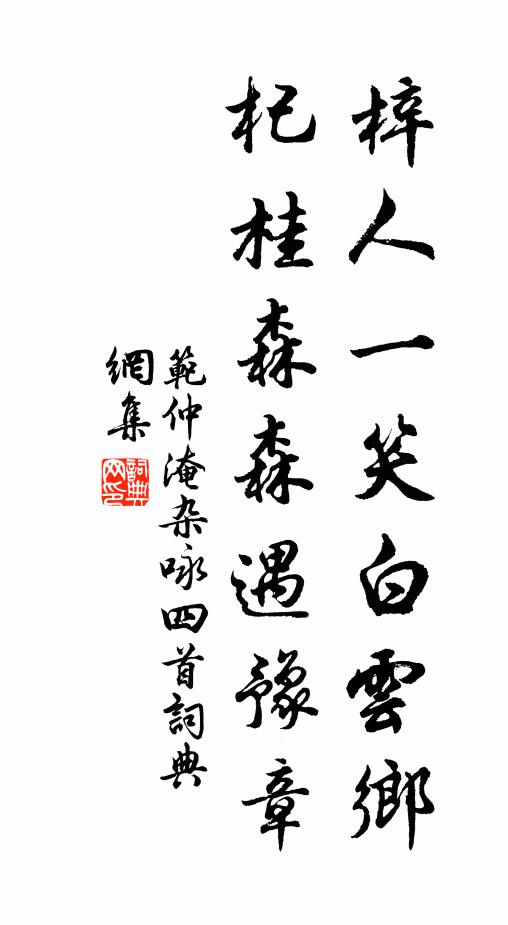 梓人一笑白雲鄉
杞桂森森遇豫章
範仲淹杂咏四首詞典
網集
詞典
网印